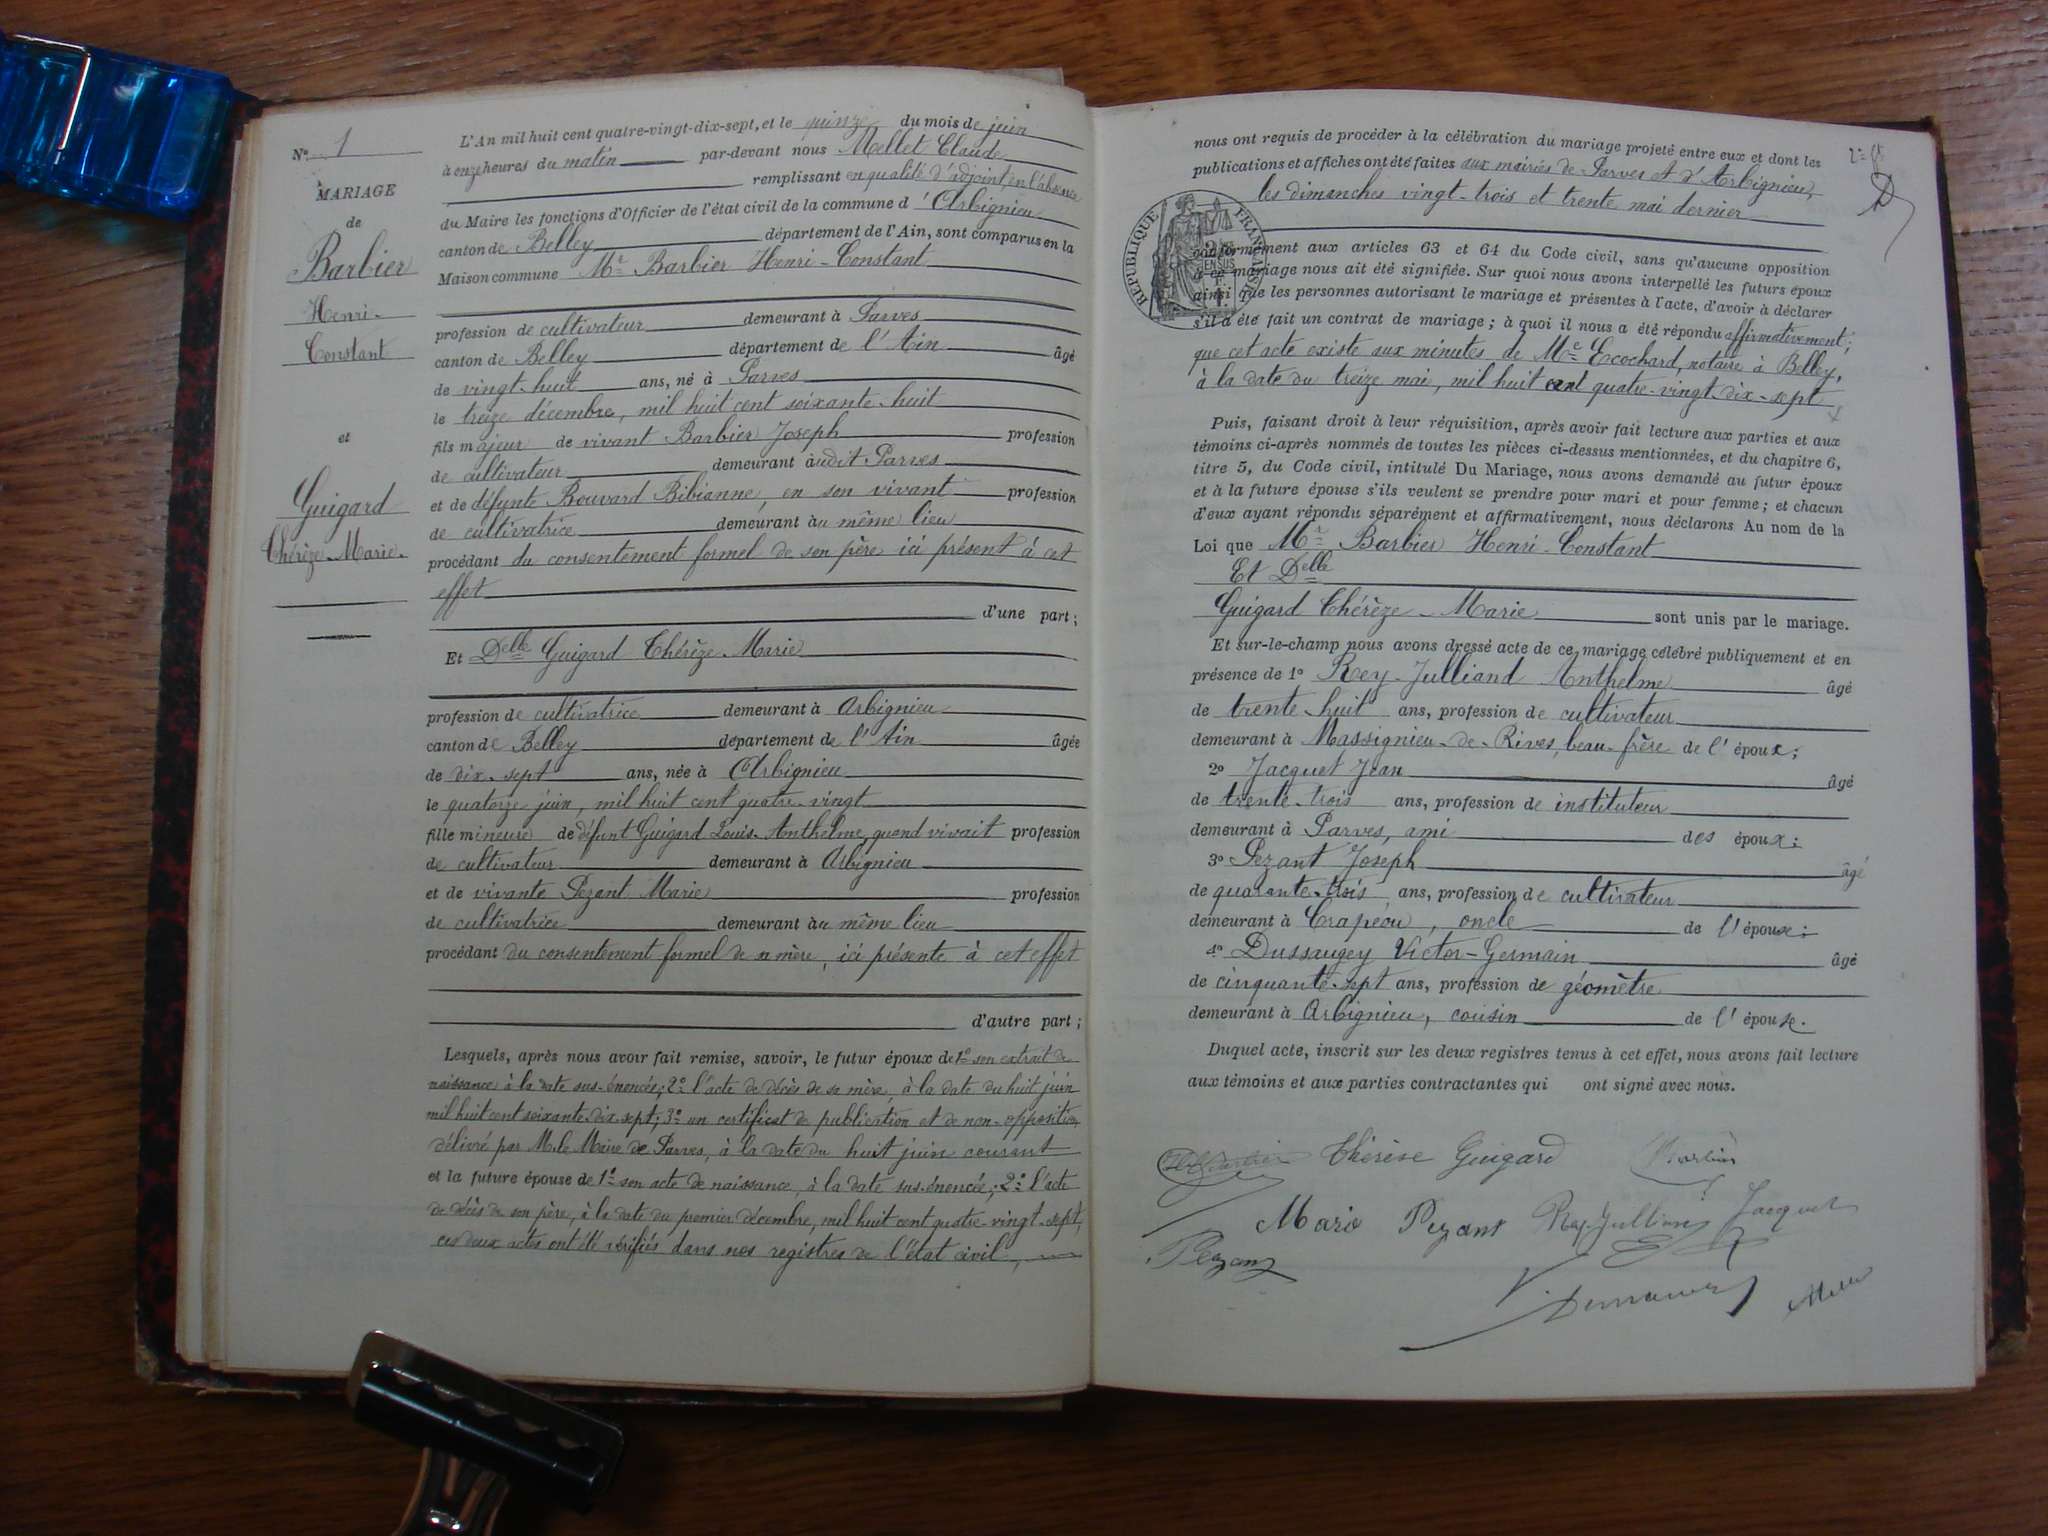 N° 1
MARIAGE
de
Barbier
Henri-
Constant
et
Guigard
Thérèze-Marie.
L'An mil huit cent quatre-vingt-dix-sept, et le quinze du mois de juin
à onze heures du matin par-devant nous Mellet Claude
remplissant en qualité d'adjoint, en l'absence
du Maire les fonctions d'Officier de l'état civil de la commune d'Arbignieu
canton de Belley département de l'Ain, sont comparus en la
Maison commune Mr Barbier Henri-Constant
profession de cultivateur demeurant à Parves
canton de Belley département de l'Ain âgé
de vingt-huit ans, né à Parves
le treize décembre, mil huit cent soixante-huit
fils majeur de vivant Barbier Joseph profession
de cultivateur demeurant àudit Parves
et de défunte Bouvard Bibianne, en son vivant profession
de cultivatrice demeurant àu même lieu
procédant du consentement formel de son père ici présent à cet
effet
d'une part;
Et Delle Guigard Thérèze-Marie
profession de cultivatrice demeurant à Arbignieu
canton de Belley département de l'Ain âgée
de dix-sept ans, née à Arbignieu
le quatorze juin, mil huit cent quatre-vingt
fille mineure de défunt Guigard Louis-Anthelme, quand vivait profession
de cultivateur demeurant à Arbignieu
et de vivante Pezant Marie profession
de cultivatrice demeurant àu même lieu
procédant du consentement formel de sa mère, ici présente à cet effet
d'autre part;
Lesquels, après nous avoir fait remise, savoir, le futur époux de 1° son extrait de
naissance à la date sus-énoncée; 2° l'acte de décès de sa mère, à la date du huit juin
mil huit cent soixante-dix-sept; 3° un certificat de publication et de non-opposition
délivré par M. le Maire de Parves, à la date du huit juin courant
et la future épouse de 1° son acte de naissance, à la date sus-énoncée; 2° l'acte
de décès de son père, à la date du premier décembre, mil huit cent quatre-vingt-sept,
ces deux actes ont été vérifiés dans nos registres de l'état civil,
nous ont requis de procéder à la célébration du mariage projeté entre eux et dont les
publications et affiches ont été faites aux mairies de Parves et d'Arbignieu,
les dimanches vingt-trois et trente mai dernier
RÉPUBLIQUE FRANÇAISE
conformément aux articles 63 et 64 du Code civil, sans qu'aucune opposition
à ce mariage nous ait été signifiée. Sur quoi nous avons interpellé les futurs époux
ainsi que les personnes autorisant le mariage et présentes à l'acte, d'avoir à déclarer
s'il a été fait un contrat de mariage; à quoi il nous a été répondu affirmativement;
que cet acte existe aux minutes de Me Ecochard, notaire à Belley,
à la date du treize mai, mil huit cent quatre-vingt-dix-sept
Puis, faisant droit à leur réquisition, après avoir fait lecture aux parties et aux
témoins ci-après nommés de toutes les pièces ci-dessus mentionnées, et du chapitre 6,
titre 5, du Code civil, intitulé Du Mariage, nous avons demandé au futur époux
et à la future épouse s'ils veulent se prendre pour mari et pour femme; et chacun
d'eux ayant répondu séparément et affirmativement, nous déclarons Au nom de la
Loi que Mr Barbier Henri-Constant
Et Delle
Guigard Thérèze-Marie sont unis par le mariage.
Et sur-le-champ nous avons dressé acte de ce mariage célébré publiquement et en
présence de 1° Rey-Julliand Anthelme âgé
de trente-huit ans, profession de cultivateur
demeurant à Massignieu-de-Rives, beau-frère de l'époux;
2° Jacquet Jean âgé
de trente-trois ans, profession de instituteur
demeurant à Parves, ami des époux;
3° Pezant Joseph âgé
de quarante-trois ans, profession de cultivateur
demeurant à Crapéou, oncle de l'épouse;
4° Dussaugey Victor-Germain âgé
de cinquante-sept ans, profession de géomètre
demeurant à Arbignieu, cousin de l'épouse.
Duquel acte, inscrit sur les deux registres tenus à cet effet, nous avons fait lecture
aux témoins et aux parties contractantes qui ont signé avec nous.
Thérèse Guigard
Marie Pezant Rey-Jullian Jacquet
Pezant